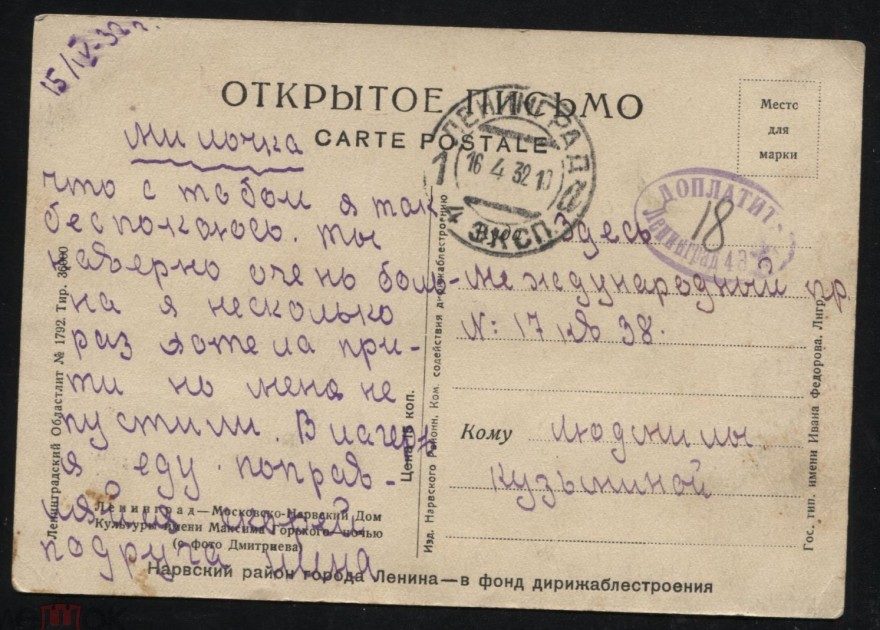 15/IV-32 г.
ОТКРЫТОЕ ПИСЬМО
CARTE POSTALE
Место
для
марки
ЛЕНИНГРАД
16 4 32 10
1
4 ЭКСП.
ДОПЛАТИТ
18
Ленинград 4
Милочка
что с тобой я так
беспокоюсь. ты
наверно очень боль-
на я несколько
раз хотела при-
ти но меня не
пустили. В лагерь
я еду. поправ-
ляйся скорей
подруга Нина
Здесь
Международный пр.
N: 17 кв 38.
Кому Людмилы
Кузьминой
Ленинградский Областлит № 1792. Тир. 36000
Цена 15 коп.
Изд. Нарвского Районн. Ком. содействия дирижаблестроению
Гос. тип. имени Ивана Федорова, Лнгр.
Ленинград—Московско-Нарвский Дом
Культуры имени Максима Горького ночью
(с фото Дмитриева)
Нарвский район города Ленина—в фонд дирижаблестроения